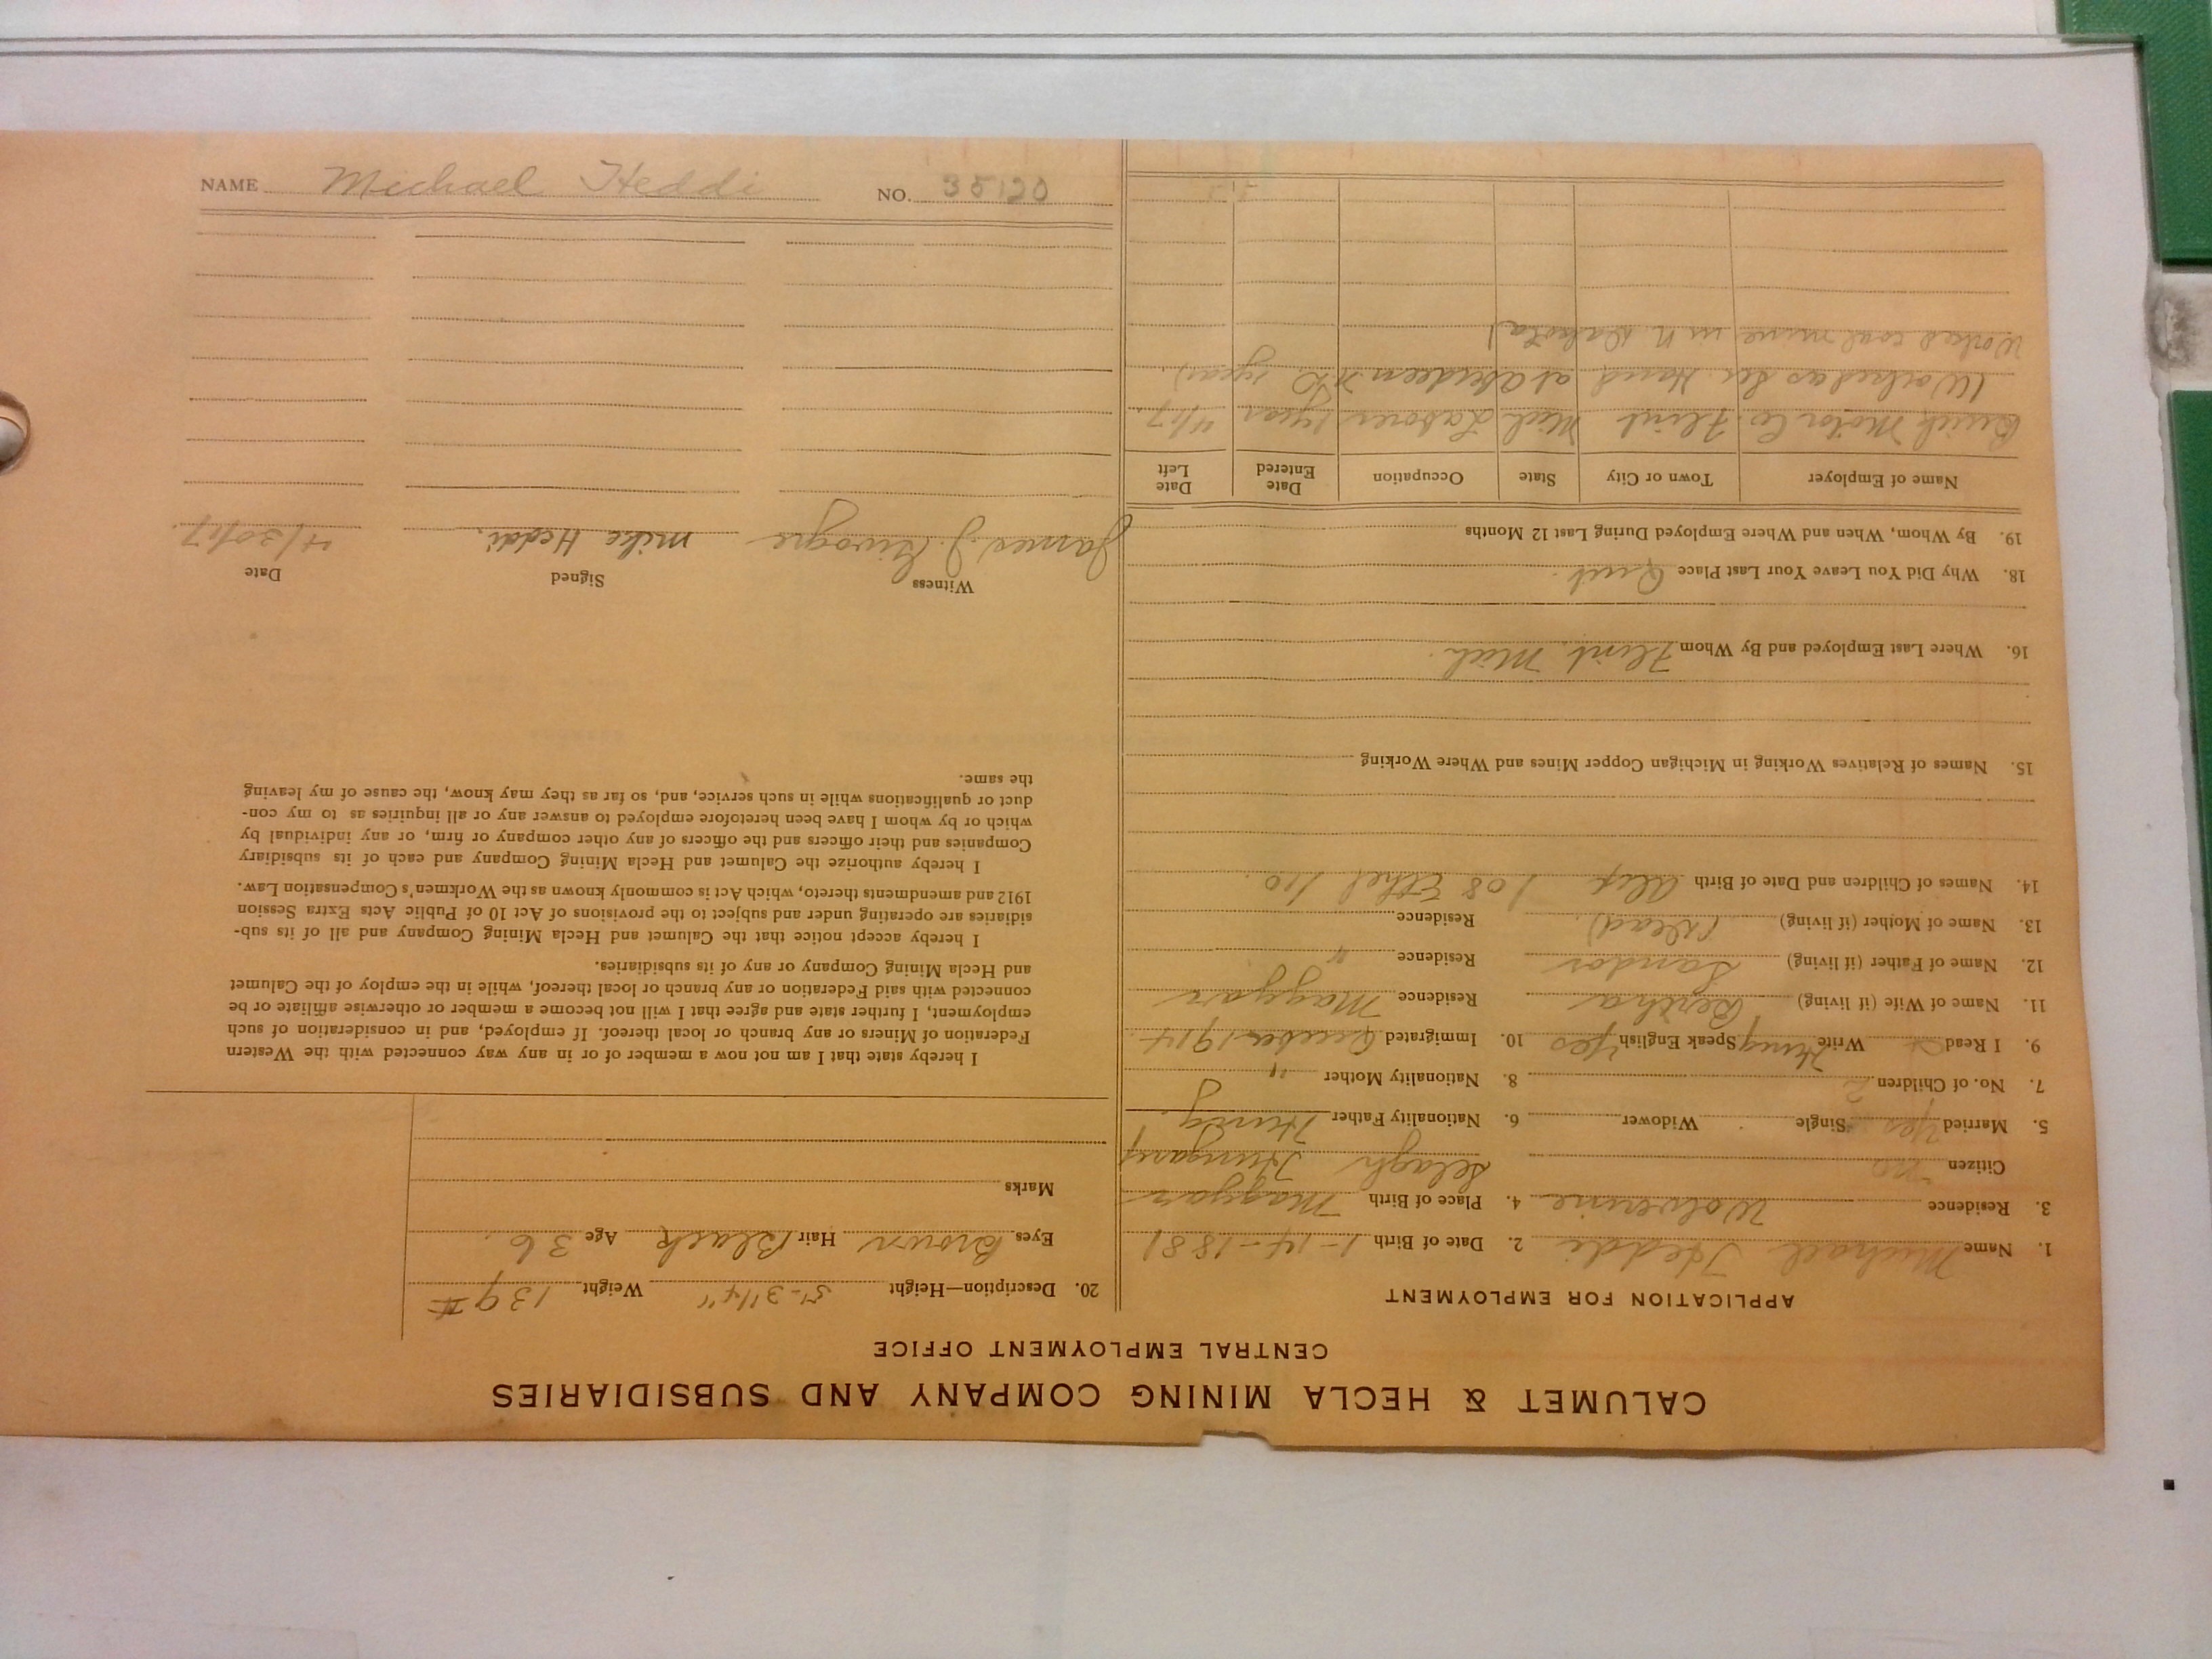 NAME Michael Heddi NO. 35120
CALUMET & HECLA MINING COMPANY AND SUBSIDIARIES
CENTRAL EMPLOYMENT OFFICE
APPLICATION FOR EMPLOYMENT
1. Name Michael Heddi 2. Date of Birth 1-14-1881
3. Residence Wolverine 4. Place of Birth Magyar
Citizen no Selagh Hungary
5. Married yes Single Widower 6. Nationality Father Hung.
7. No. of Children 2 8. Nationality Mother "
9. I Read Write Hung Speak English Yes 10. Immigrated December 1914
11. Name of Wife (if living) Bertha Residence Magyar
12. Name of Father (if living) Sandor Residence "
13. Name of Mother (if living) (Dead) Residence
14. Names of Children and Date of Birth Alex / 08 Ethel / 10.
15. Names of Relatives Working in Michigan Copper Mines and Where Working
16. Where Last Employed and By Whom Flint, Mich.
18. Why Did You Leave Your Last Place Quit.
19. By Whom, When and Where Employed During Last 12 Months
Name of Employer Town or City State Occupation Date Entered Date Left
Buick Motor Co. Flint Mich Laborer 1 year 4/17.
(Worked as Sec. Hand at Aberdeen 1 year)
Worked coal mine in N. Dakota)
20. Description—Height 5'-3 1/4" Weight 139 #
Eyes Brown Hair Black Age 36.
Marks
I hereby state that I am not now a member of or in any way connected with the Western
Federation of Miners or any branch or local thereof. If employed, and in consideration of such
employment, I further state and agree that I will not become a member or otherwise affiliate or be
connected with said Federation or any branch or local thereof, while in the employ of the Calumet
and Hecla Mining Company or any of its subsidiaries.
I hereby accept notice that the Calumet and Hecla Mining Company and all of its sub-
sidiaries are operating under and subject to the provisions of Act 10 of Public Acts Extra Session
1912 and amendments thereto, which Act is commonly known as the Workmen's Compensation Law.
I hereby authorize the Calumet and Hecla Mining Company and each of its subsidiary
Companies and their officers and the officers of any other company or firm, or any individual by
which or by whom I have been heretofore employed to answer any or all inquiries as to my con-
duct or qualifications while in such service, and, so far as they may know, the cause of my leaving
the same.
Witness Signed Date
James J. mike Heddi. 4/30/17.